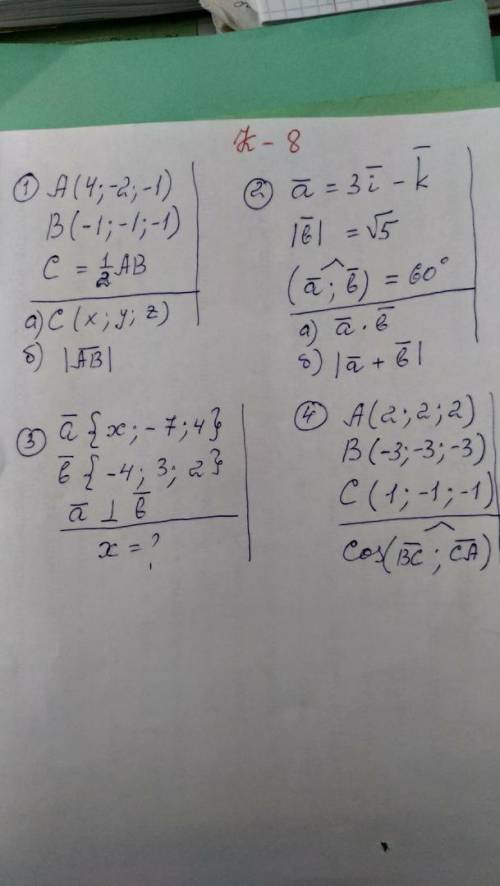 К - 8
① A(4;-2;-1)
B(-1;-1;-1)
C = ½AB
а) C(x; y; z)
б) |A̅B̅|
② a̅ = 3i̅ - k̅
|b̅| = √5
(a̅; b̅) = 60°
а) a̅ · b̅
б) |a̅ + b̅|
③ a̅ {x; -7; 4}
b̅ {-4; 3; 2}
a̅ ⊥ b̅
x = ?
④ A(2; 2; 2)
B(-3;-3;-3)
C(1; -1; -1)
cos(B̅C̅; C̅A̅)